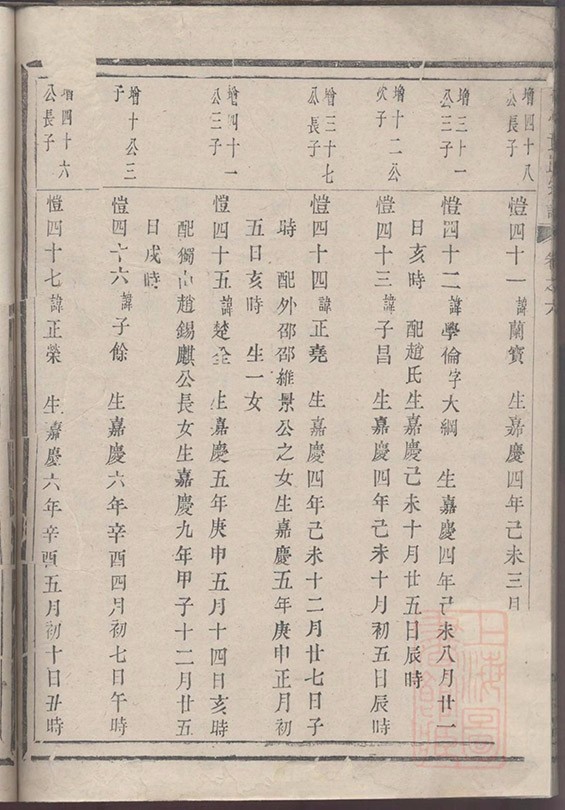 增四十八
公長子
愷四十一 諱蘭寶 生嘉慶四年己未三月
增三十一
公三子
愷四十二 諱學倫字大綱 生嘉慶四年己未八月廿一
日亥時 配趙氏生嘉慶己未十月廿五日辰時
增十二公
次子
愷四十三 諱子昌 生嘉慶四年己未十月初五日辰時
增三十七
公長子
愷四十四 諱正堯 生嘉慶四年己未十二月廿七日子
時 配外邵邵維景公之女生嘉慶五年庚申正月初
五日亥時 生一女
增四十一
公三子
愷四十五 諱楚全 生嘉慶五年庚申五月十四日亥時
配獨山趙錫麒公長女生嘉慶九年甲子十二月廿五
日戌時
增十公三
子
愷四十六 諱子餘 生嘉慶六年辛酉四月初七日午時
增四十六
公長子
愷四十七 諱正榮 生嘉慶六年辛酉五月初十日丑時
卷之六
上海圖